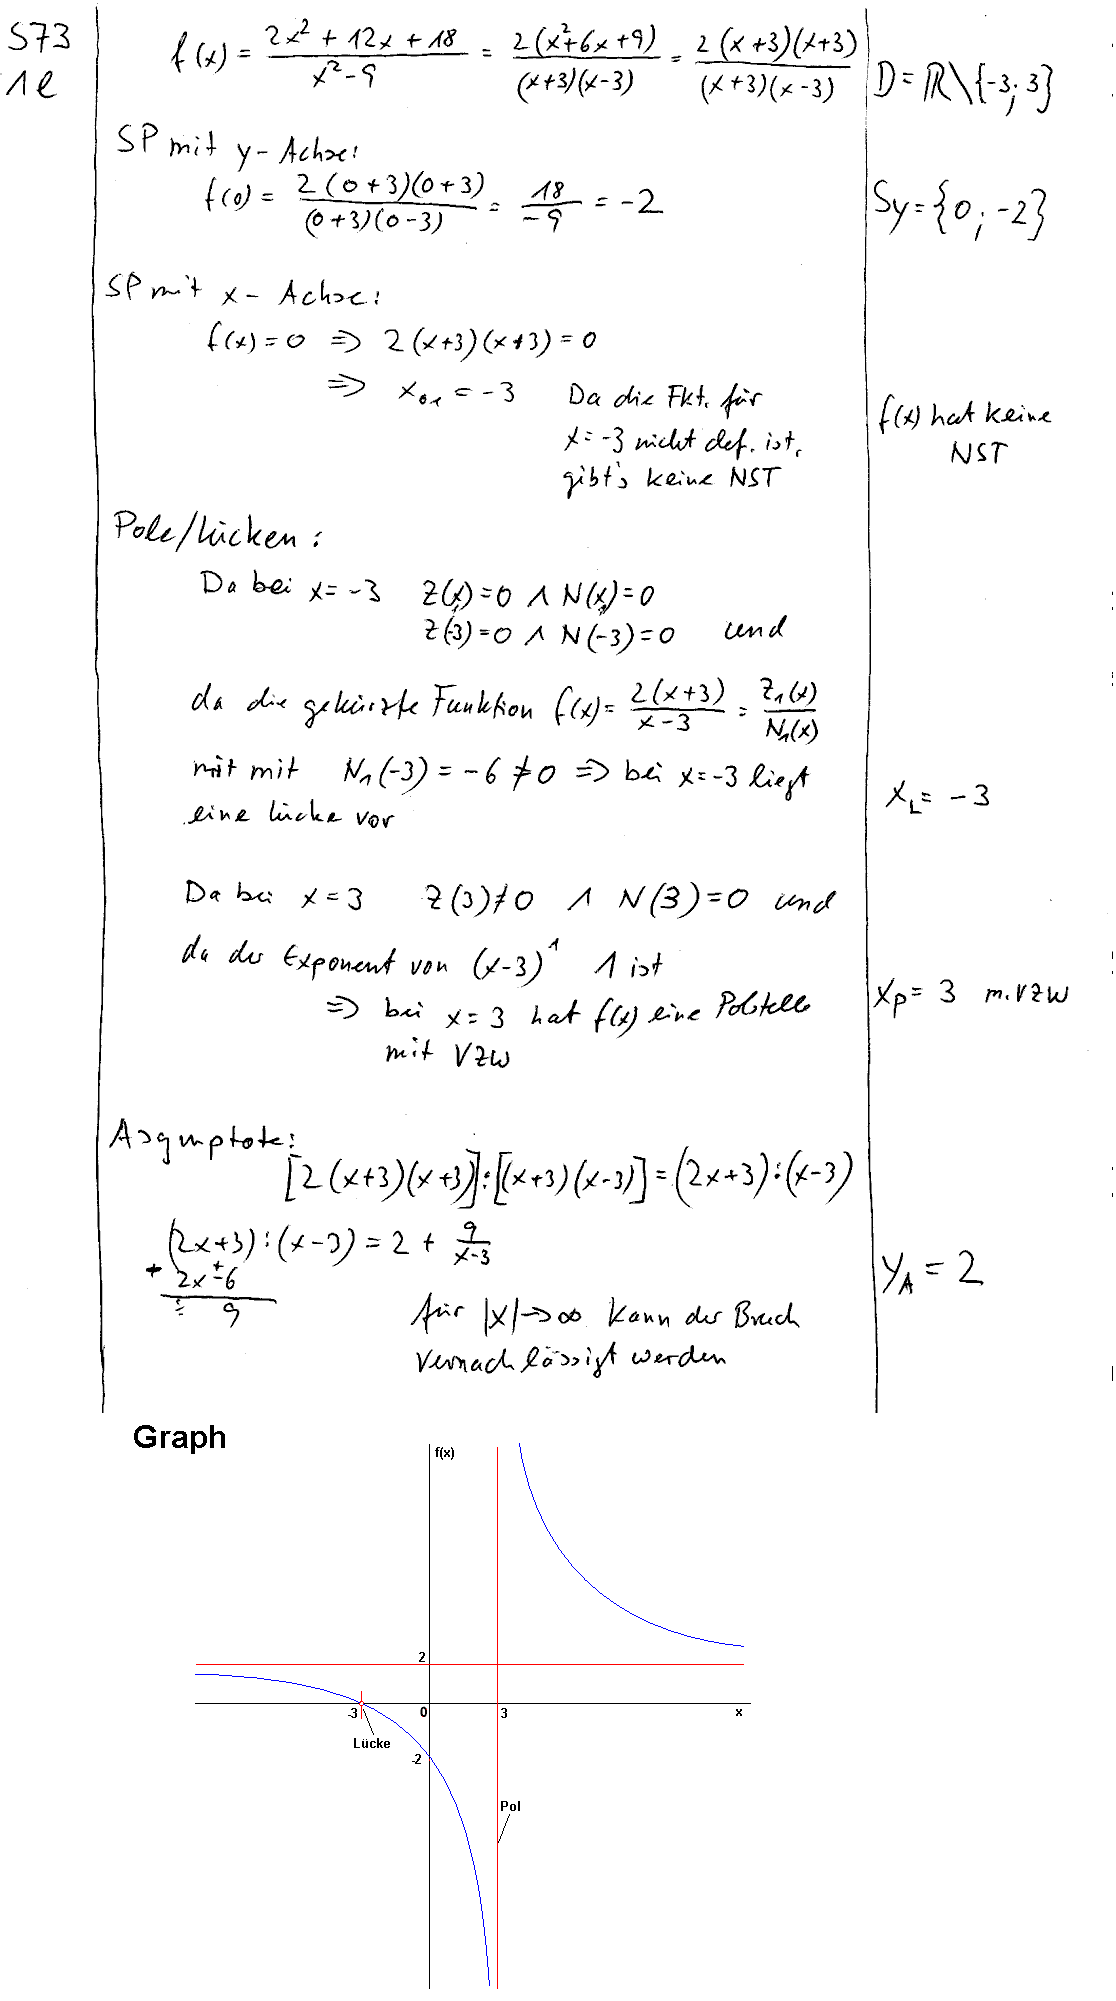 S73
1e
f(x) = (2x² + 12x + 18)/(x² - 9) = 2(x²+6x+9)/((x+3)(x-3)) = 2(x+3)(x+3)/((x+3)(x-3))
D = ℝ\{-3; 3}
SP mit y-Achse:
f(0) = 2(0+3)(0+3)/((0+3)(0-3)) = 18/-9 = -2
Sy = {0; -2}
SP mit x-Achse:
f(x) = 0 ⇒ 2(x+3)(x+3) = 0
⇒ x₀₁ = -3 Da die Fkt. für
x = -3 nicht def. ist,
gibt's keine NST
f(x) hat keine
NST
Pole/Lücken:
Da bei x = -3 Z(x) = 0 ∧ N(x) = 0
Z(-3) = 0 ∧ N(-3) = 0 und
da die gekürzte Funktion f(x) = 2(x+3)/(x-3) = Z₁(x)/N₁(x)
mit mit N₁(-3) = -6 ≠ 0 ⇒ bei x = -3 liegt
eine Lücke vor
x_L = -3
Da bei x = 3 Z(3) ≠ 0 ∧ N(3) = 0 und
da der Exponent von (x-3)¹ 1 ist
⇒ bei x = 3 hat f(x) eine Polstelle
mit VZW
x_P = 3 m. VZW
Asymptote:
[2(x+3)(x+3)]:[(x+3)(x-3)] = (2x+3):(x-3)
(2x+3):(x-3) = 2 + 9/(x-3)
2x-6
9
y_A = 2
für |x| → ∞ kann der Bruch
vernachlässigt werden
Graph
f(x)
2
-3
0
3
x
Lücke
-2
Pol